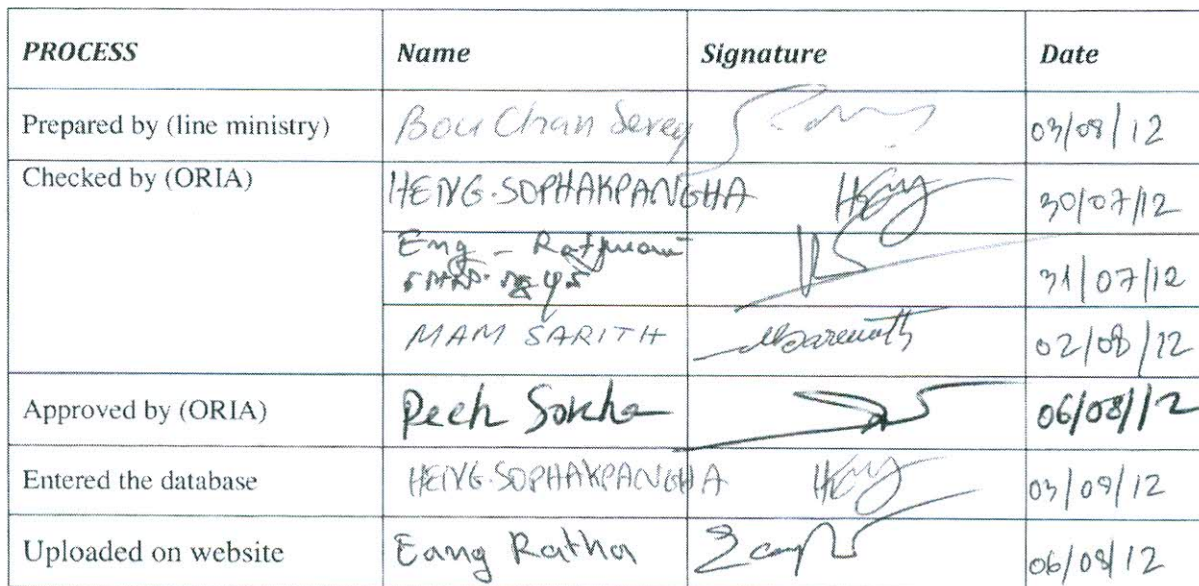 PROCESS Name Signature Date
Prepared by (line ministry) Bou Chan Serey 03/08/12
Checked by (ORIA) HENG.SOPHAKPANGHA 30/07/12
Eng - 31/07/12
MAM SARITH 02/08/12
Approved by (ORIA) Pech Sokha 06/08/12
Entered the database HENG.SOPHAKPANGHA 03/08/12
Uploaded on website Eang Ratha 06/08/12